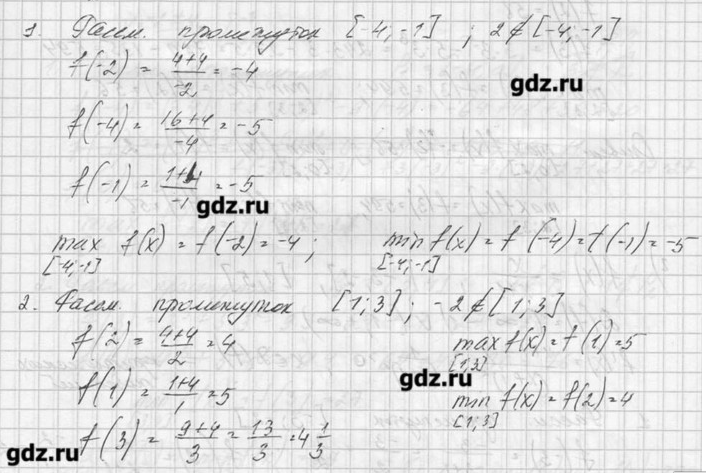 1. Рассм. промежуток [-4; -1] ; 2 ∉ [-4; -1]
f(-2) = (4+4)/(-2) = -4
gdz.ru
f(-4) = (16+4)/(-4) = -5
f(-1) = (1+4)/(-1) = -5
gdz.ru
max f(x) = f(-2) = -4 ; min f(x) = f(-4) = f(-1) = -5
[-4; -1] [-4; -1]
2. Рассм. промежуток [1; 3] ; -2 ∉ [1; 3]
f(2) = (4+4)/2 = 4 max f(x) = f(1) = 5
[1;3]
f(1) = (1+4)/1 = 5 gdz.ru min f(x) = f(2) = 4
[1;3]
f(3) = (9+4)/3 = 13/3 = 4 1/3
gdz.ru